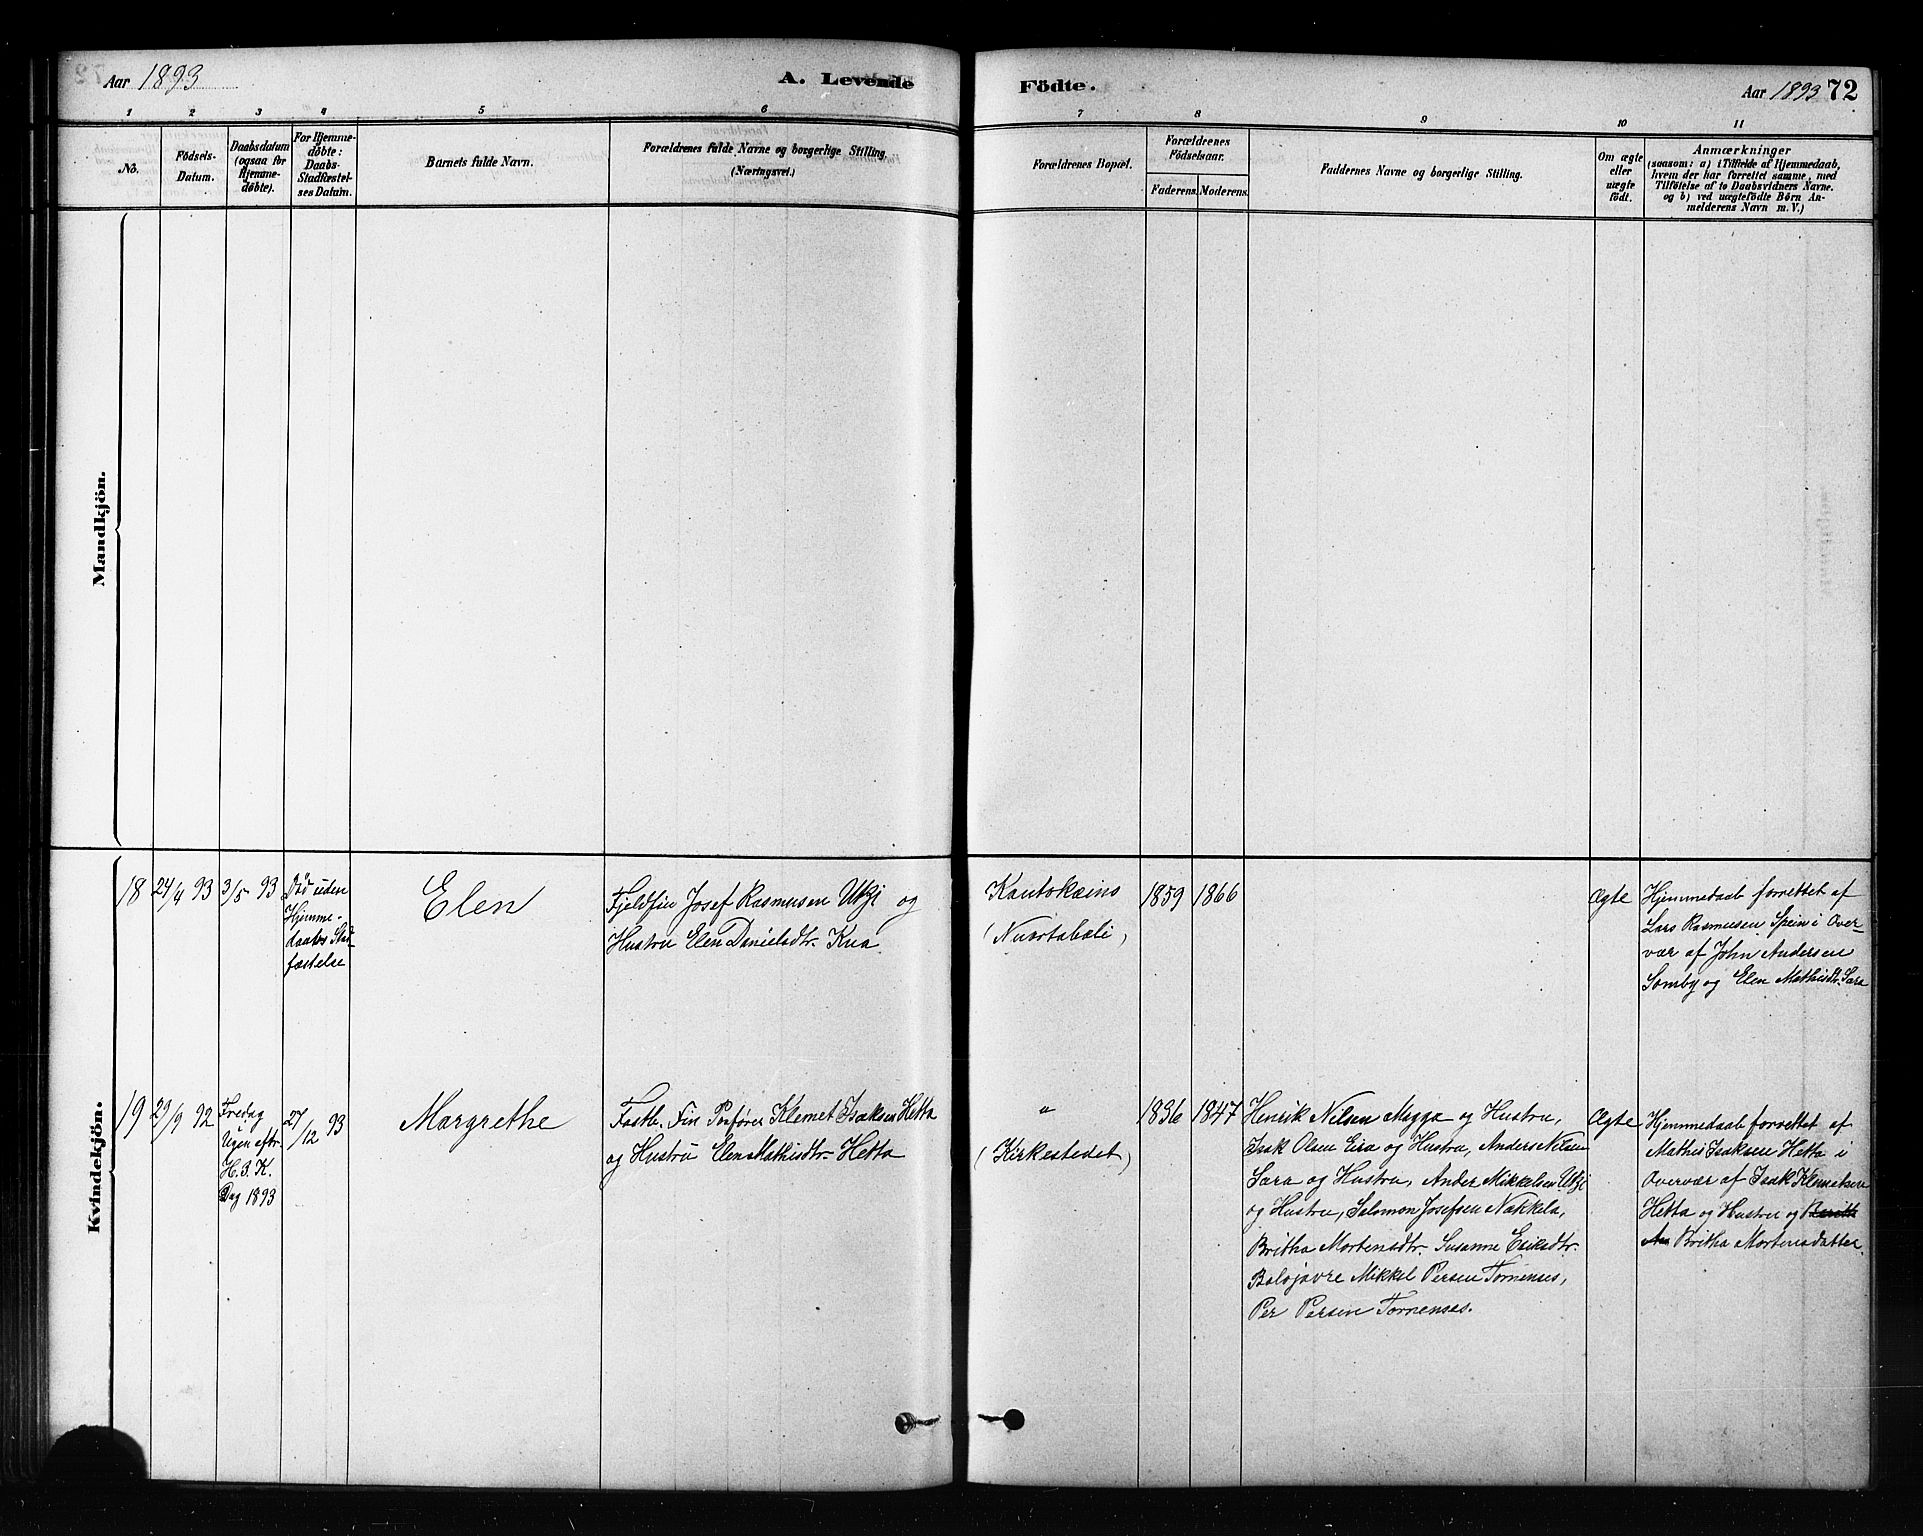 Aar 1893
A. Levende
Födte.
Aar 1893 72
1 2 3 4 5 6 7 8 9 10 11
No.
Födsels-
Datum.
Daabsdatum
(ogsaa for
Hjemme-
døbte).
For Hjemme-
døbte:
Daabs-
Stadfæstel-
ses Datum.
Barnets fulde Navn.
Forældrenes fulde Navne og borgerlige Stilling.
(Næringsvei.)
Forældrenes Bopæl.
Forældrenes
Födselsaar.
Faderens. Moderens.
Faddernes Navne og borgerlige Stilling.
Om ægte
eller
uægte
födt.
Anmærkninger
(saasom: a) i Tilfælde af Hjemmedaab,
hvem der har forrettet samme, med
Tilföielse af to Daabsvidners Navne.
og b) ved uægtefödte Börn An-
melderens Navn m. V.)
Mandkjön.
Kvindekjön.
18
24/4 93
3/5 93
Död uden
Hjemme-
daabs Stad-
fæstelse
Elen
Fjeldfin Josef Rasmusen Utzi og
Hustru Elen Danielsdtr. Kna
Kautokeino
(Nuortabeli)
1859
1866
Ægte
Hjemmedaab forrettet af
Lars Rasmusen Spein i Over-
vær af John Andersen
Somby og Elen Mathisdtr. Sara
19
29/9 92
Fredag
Ugen eftr.
H. 3. K.
Dag 1893
27/12 93
Margrethe
Fastb. Fin Klemet Isaksen Hetta
og Hustru Elen Mathisdtr. Hetta
"
(Kirkestedet)
1836
1847
Henrik Nilsen Magga og Hustru,
Isak Olsen Eira og Hustru, Anders Nilsen
Sara og Hustru, Ander Mikkelsen Utzi
og Hustru, Salomon Josefsen Nækkela,
Britha Mortensdtr. Susanne Eriksdtr.
Balojavre Mikkel Persen Tornenses,
Per Persen Tornenses.
Ægte
Hjemmedaab forrettet af
Mathis Isaksen Hetta i
Overvær af Isak Klemetsen
Hetta og Hustru og
Britha Mortensdatter.